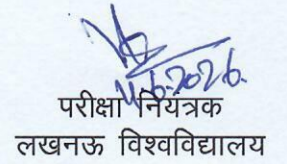 11.6.2026.
परीक्षा नियंत्रक
लखनऊ विश्वविद्यालय